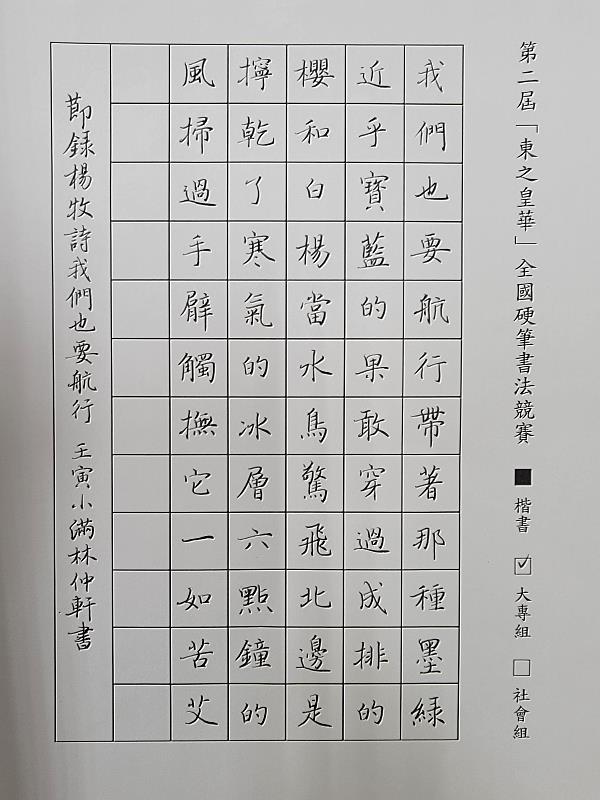 第二屆「東之皇華」全國硬筆書法競賽 ■ 楷書 ☑ 大專組 □ 社會組
我們也要航行帶著那種墨綠
近乎寶藍的果敢穿過成排的
櫻和白楊當水鳥驚飛北邊是
擰乾了寒氣的冰層六點鐘的
風掃過手臂觸撫它一如苦艾
節錄楊牧詩我們也要航行 壬寅小滿林仲軒書